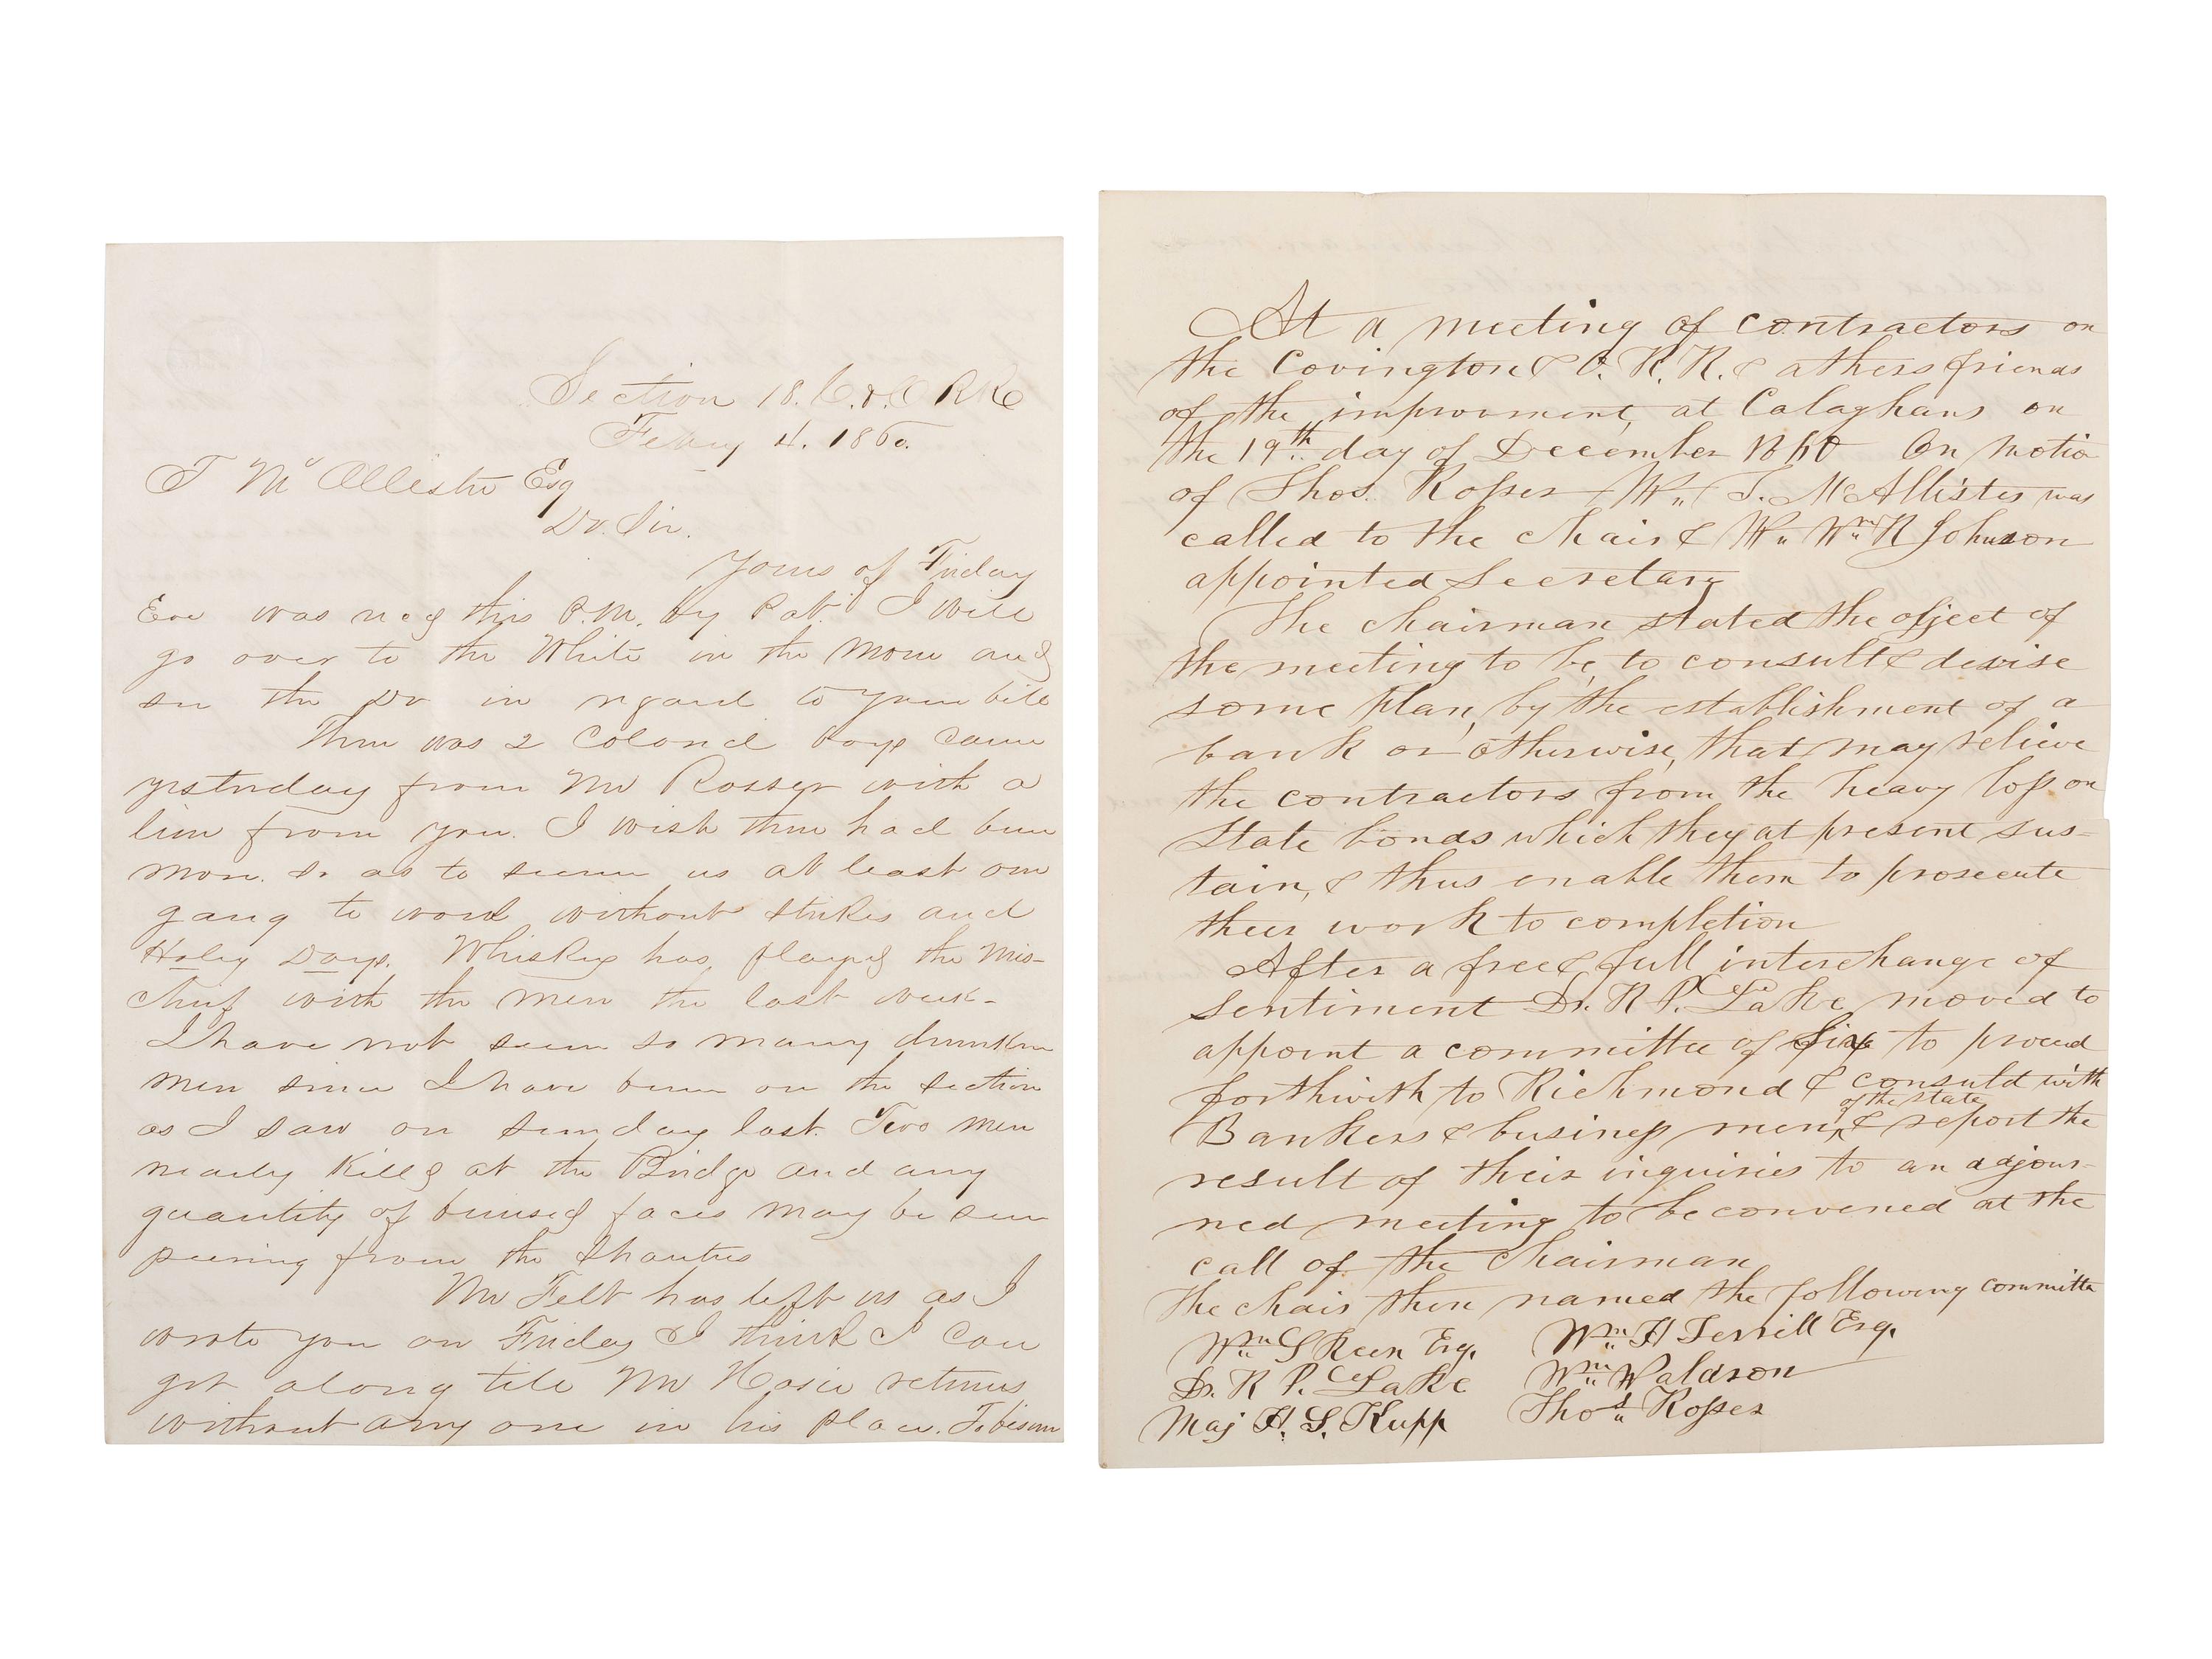 Section 18. C. & O RR
Feby 4. 1860.
T McAllister Esq
Dr. Sir.
Yours of Friday
Eve was recd this P.M. by Pat. I will
go over to the White in the Morn and
see the Dr in regard to your bill
There was 2 Colored boys came
yesterday from Mr Rosser with a
line from you. I wish there had been
more. So as to secure us at least one
gang to work without strikes and
Holy Days. Whiskey has played the Mis-
chief with the men the last week-
I have not seen so many drunken
men since I have been on the section
as I saw on Sunday last. Two men
nearly killed at the Bridge and any
quantity of bruised faces may be seen
peering from the Shanties
Mr Felt has left us as I
wrote you on Friday & I think I can
get along till Mr returns
without any one in his place.
At a meeting of contractors on
the Covington & O. R. R. & others friends
of the improvment, at Calaghans on
the 19th day of December 1860 On motio
of Thos. Rosser Mr. T. McAllister was
called to the chair & Mr. Wm R Johnson
appointed Secretary
The chairman stated the object of
the meeting to be, to consult & devise
some plan, by the establishment of a
bank or otherwise, that may relieve
the contractors from the heavy loss on
State bonds which they at present sus-
tain, & thus enable them to prosecute
their work to completion
After a free & full interchange of
sentiment Dr. R P. Lake moved to
appoint a committee of six to proceed
forthwith to Richmond & consult with
of the state
Bankers & business men, & report the
result of their inquiries to an adjour-
ned meeting to be convened at the
call of the Chairman
The chair then named the following committee
Wm Skeen Esq. Wm H Terrill Esq.
Dr. R P. Lake Wm Waldron
Maj H. S. Kupp Thos Rosser